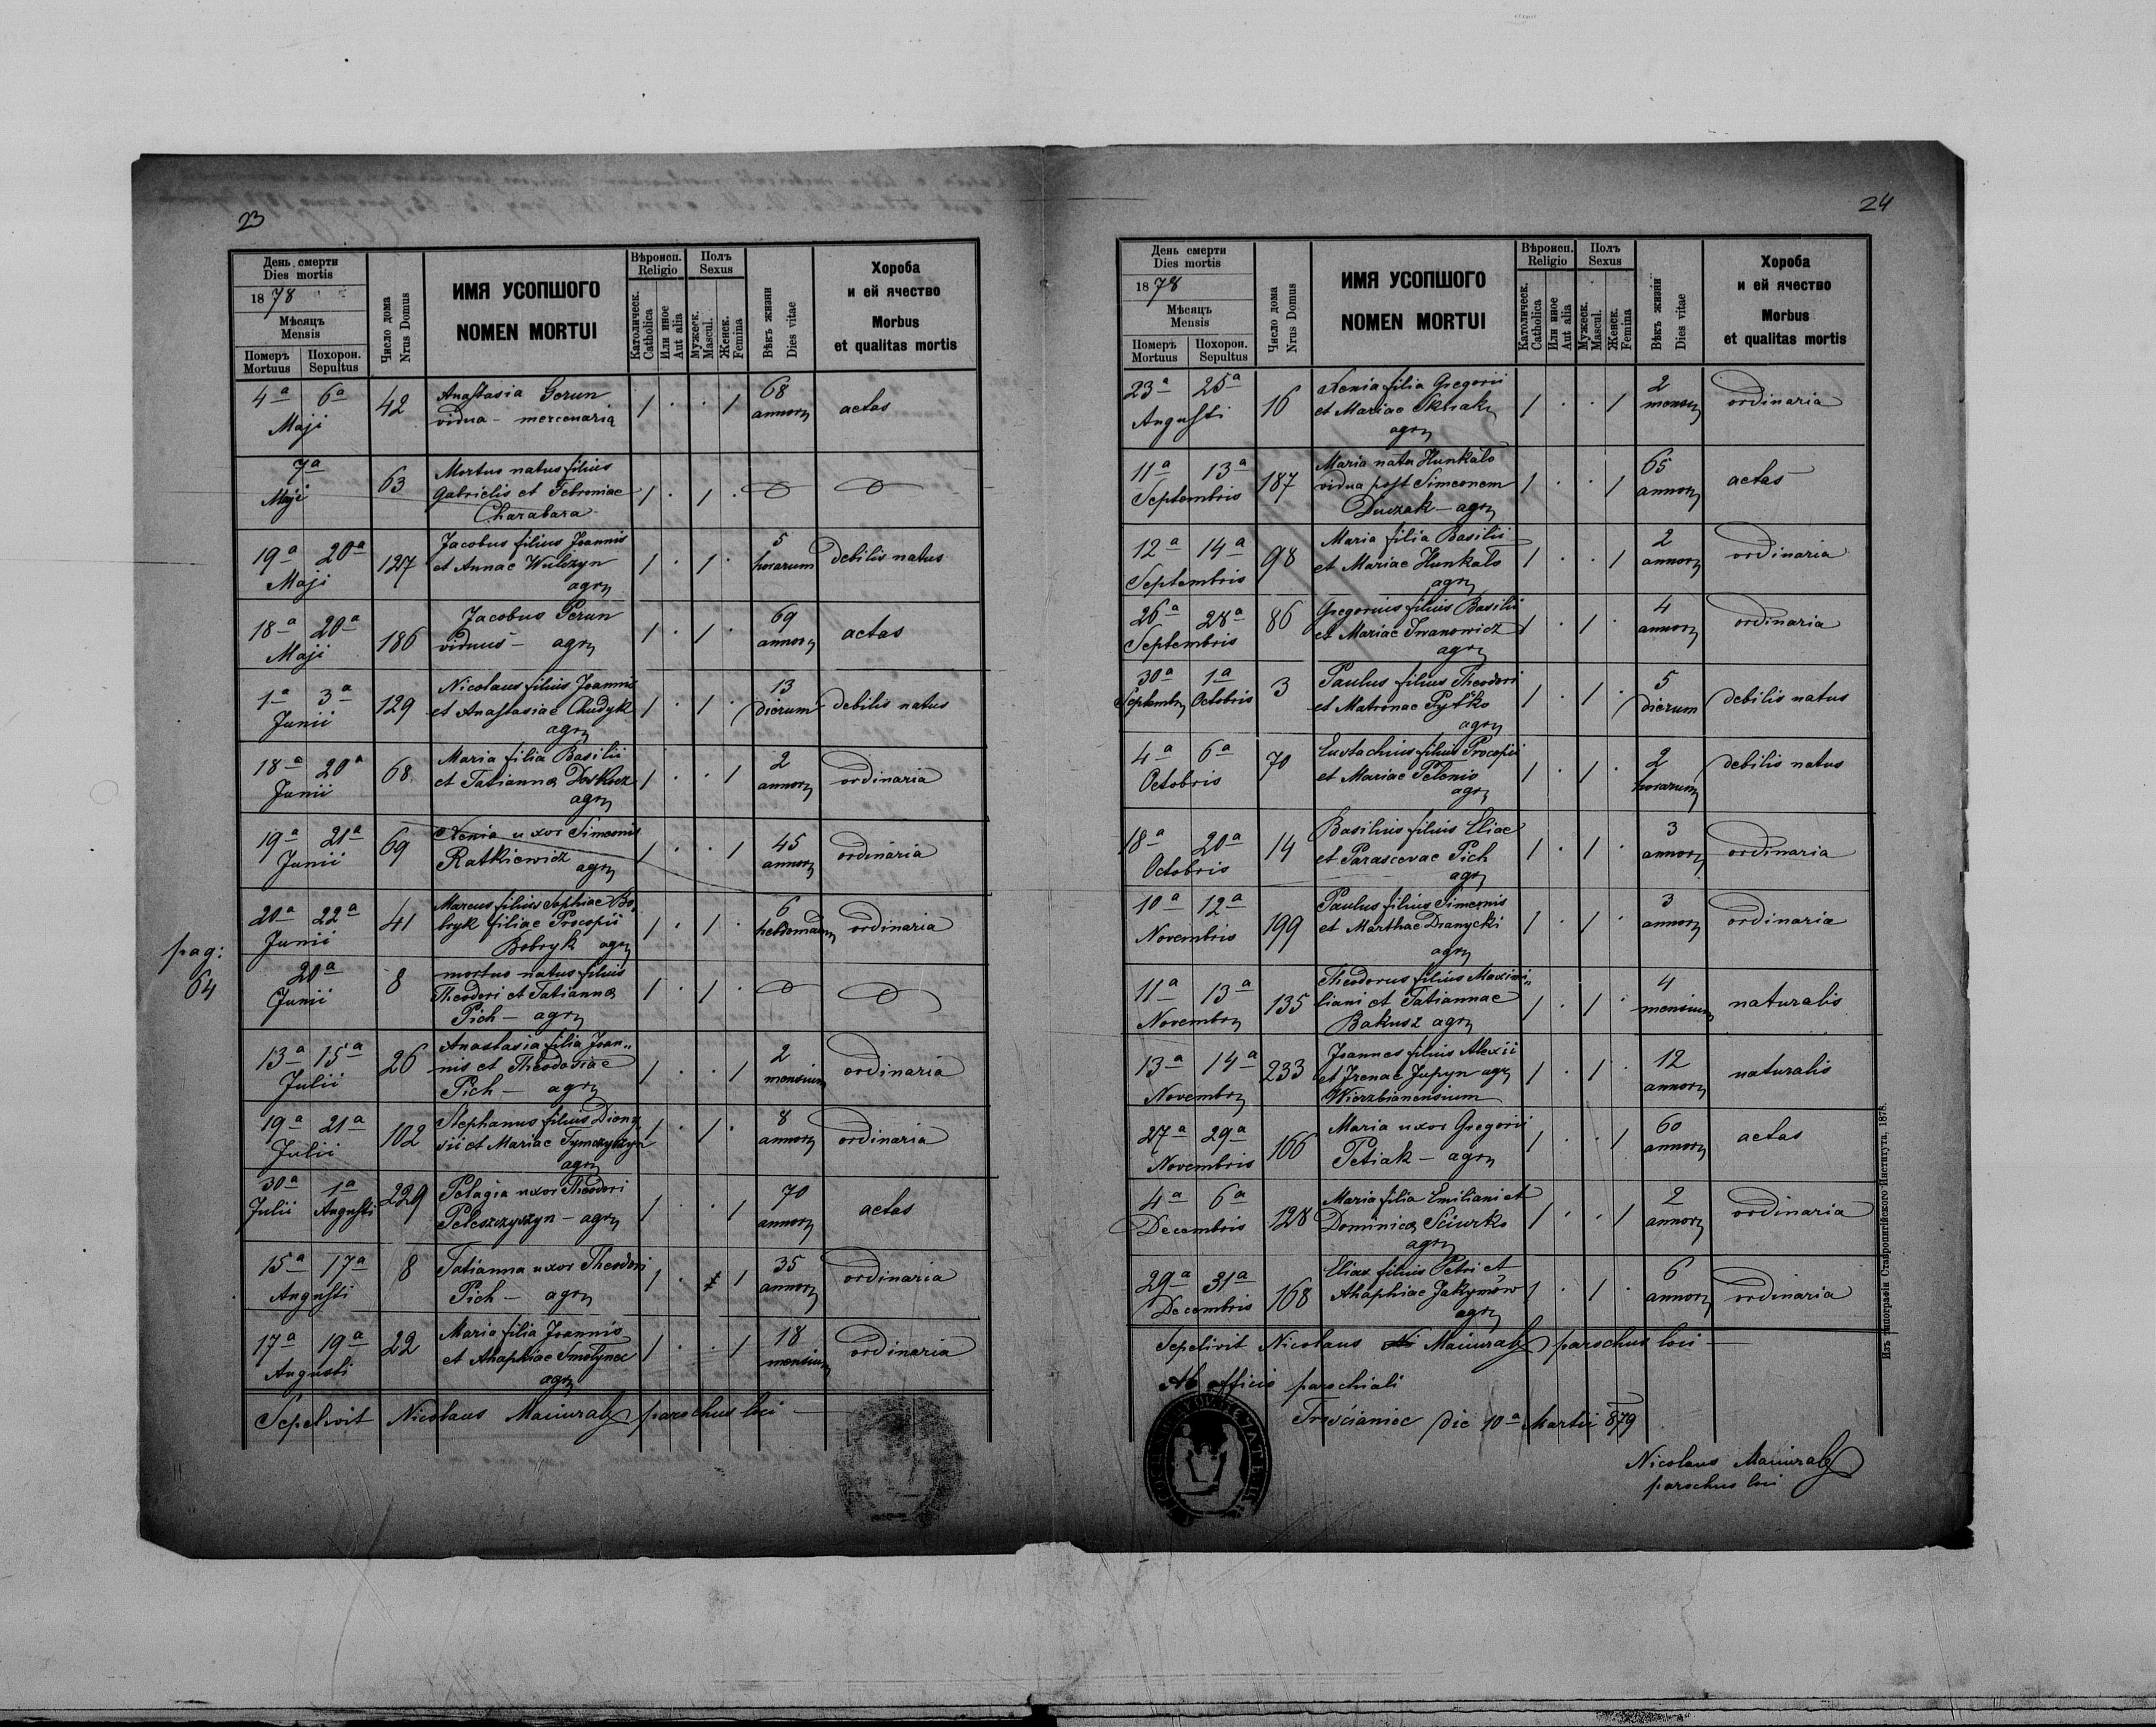 23
День смерти
Dies mortis
1878
Мѣсяцъ
Mensis
Померъ Похорон.
Mortuus Sepultus
Число дома
Nrus Domus
ИМЯ УСОПШОГО
NOMEN MORTUI
Вѣроисп.
Religio
Католическ.
Catholica
Или иное
Aut alia
Полъ
Sexus
Мужеск.
Mascul.
Женск.
Femina
Вѣкъ жизни
Dies vitae
Хороба
и ей ячество
Morbus
et qualitas mortis
4a 6a Maji 42 Anastasia Gerun
vidua - mercenaria
1 . . 1 68 annor aetas
7a Maji 63 Mortuo natus filius
Gabrielis et Febroniae
Charabara
1 . 1 .
19a 20a Maji 127 Jacobus filius Joannis
et Annae Wulczyn
agr
1 . 1 . 5 horarum debilis natus
18a 20a Maji 186 Jacobus Perun
viduus - agr
1 . 1 . 69 annor aetas
1a 3a Junii 129 Nicolaus filius Joannis
et Anastasiae Chudyk
agr
1 . 1 . 13 dierum debilis natus
18a 20a Junii 68 Maria filia Basilii
et Tatianna
agr
1 . . 1 2 annor ordinaria
19a 21a Junii 69 Xenia uxor Simeonis
Ratkiewicz agr
1 . . 1 45 annor ordinaria
20a 22a Junii 41 Marcus filius Sophiae Bo
bryk filiae Procopii
Bobryk agr
1 . 1 . 6 ordinaria
pag:
64
20a Junii 8 mortuo natus filius
Theodori et Tatianna
Pich - agr
1 . 1 .
13a 15a Julii 26 Anastasia filia Joan„
nis et Theodosiae
Pich - agr
1 . . 1 2 mensium ordinaria
19a 21a Julii 102 Stephanus filius Diony
sii et Mariae Tymczyszyn
agr
1 . 1 . 8 annor ordinaria
30a Julii 1a Augusti 229 Pelagia uxor Theodori
Peleszczyszyn - agr
1 . . 1 70 annor aetas
15a 17a Augusti 8 Tatianna uxor Theodori
Pich - agr
1 . 1 35 annor ordinaria
17a 19a Augusti 22 Maria filia Joannis
et Ahaphiae Smolynec
agr
1 . . 1 18 mensium ordinaria
Sepelivit Nicolaus parochus loci
24
День смерти
Dies mortis
1878
Мѣсяцъ
Mensis
Померъ Похорон.
Mortuus Sepultus
Число дома
Nrus Domus
ИМЯ УСОПШОГО
NOMEN MORTUI
Вѣроисп.
Religio
Католическ.
Catholica
Или иное
Aut alia
Полъ
Sexus
Мужеск.
Mascul.
Женск.
Femina
Вѣкъ жизни
Dies vitae
Хороба
и ей ячество
Morbus
et qualitas mortis
23a 25a Augusti 16 Xenia filia Gregorii
et Mariae
agr
1 . . 1 2 ordinaria
11a 13a Septembris 187 Maria nata Hunkalo
vidua post Simeonem
Duczak - agr
1 . . 1 65 annor aetas
12a 14a Septembris 98 Maria filia Basilii
et Mariae Hunkalo
agr
1 . . 1 2 annor ordinaria
26a 28a Septembris 86 Gregorius filius Basilii
et Mariae Iwanowicz
agr
1 . 1 . 4 annor ordinaria
30a Septembr 1a Octobris 3 Paulus filius Theodori
et Matronae Pytko
agr
1 . 1 . 5 dierum debilis natus
4a 6a Octobris 70 Eustachius filius Procopii
et Mariae Pelenio
agr
1 . 1 . 2 horarum debilis natus
18a 20a Octobris 14 Basilius filius Eliae
et Parascevae Pich
agr
1 . 1 . 3 annor ordinaria
10a 12a Novembris 199 Paulus filius Simeonis
et Marthae Dranycki
agr
1 . 1 . 3 annor ordinaria
11a 13a Novembr 135 Theodorus filius Maximi„
liani et Tatiannae
Bakusz agr
1 . 1 . 4 mensium naturalis
13a 14a Novembr 233 Joannes filius Alexii
et Irenae Jupyn agr
Wierzbianensium
1 . 1 . 12 annor naturalis
27a 29a Novembris 166 Maria uxor Gregorii
Petiak - agr
1 . . 1 60 annor aetas
4a 6a Decembris 128 Maria filia Emiliani et
Dominica Sciurko
agr
1 . . 1 2 annor ordinaria
29a 31a Decembris 168 Elias filius Petri et
Ahaphiae Jakymów
agr
1 . 1 . 6 annor ordinaria
Sepelivit Nicolaus parochus loci
Ab officio parochiali
Trościaniec die 10a Martii 879
Nicolaus
parochus loci
Изъ типографіи Ставропигійского Института, 1878.